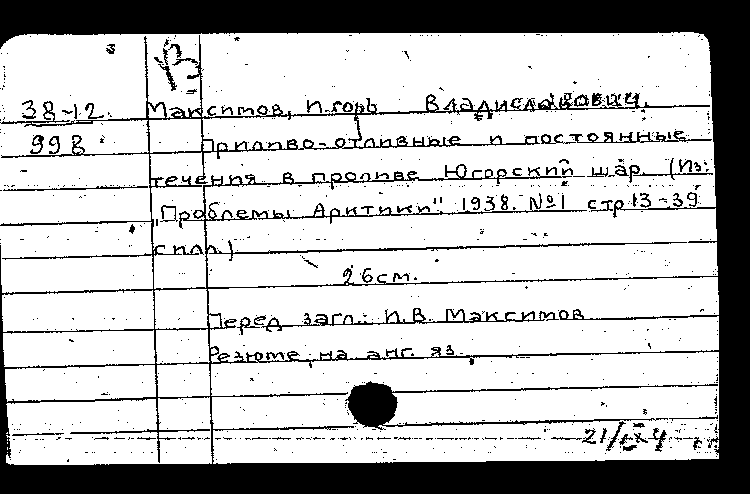 В
38-12. Максимов, Игорь Владиславович.
998 Приливо-отливные и постоянные
течения в проливе Югорский шар. (Из:
„Проблемы Арктики". 1938. №1 стр 13-39
с илл.)
26см.
Перед загл.: И.В. Максимов
Резюме на анг. яз.